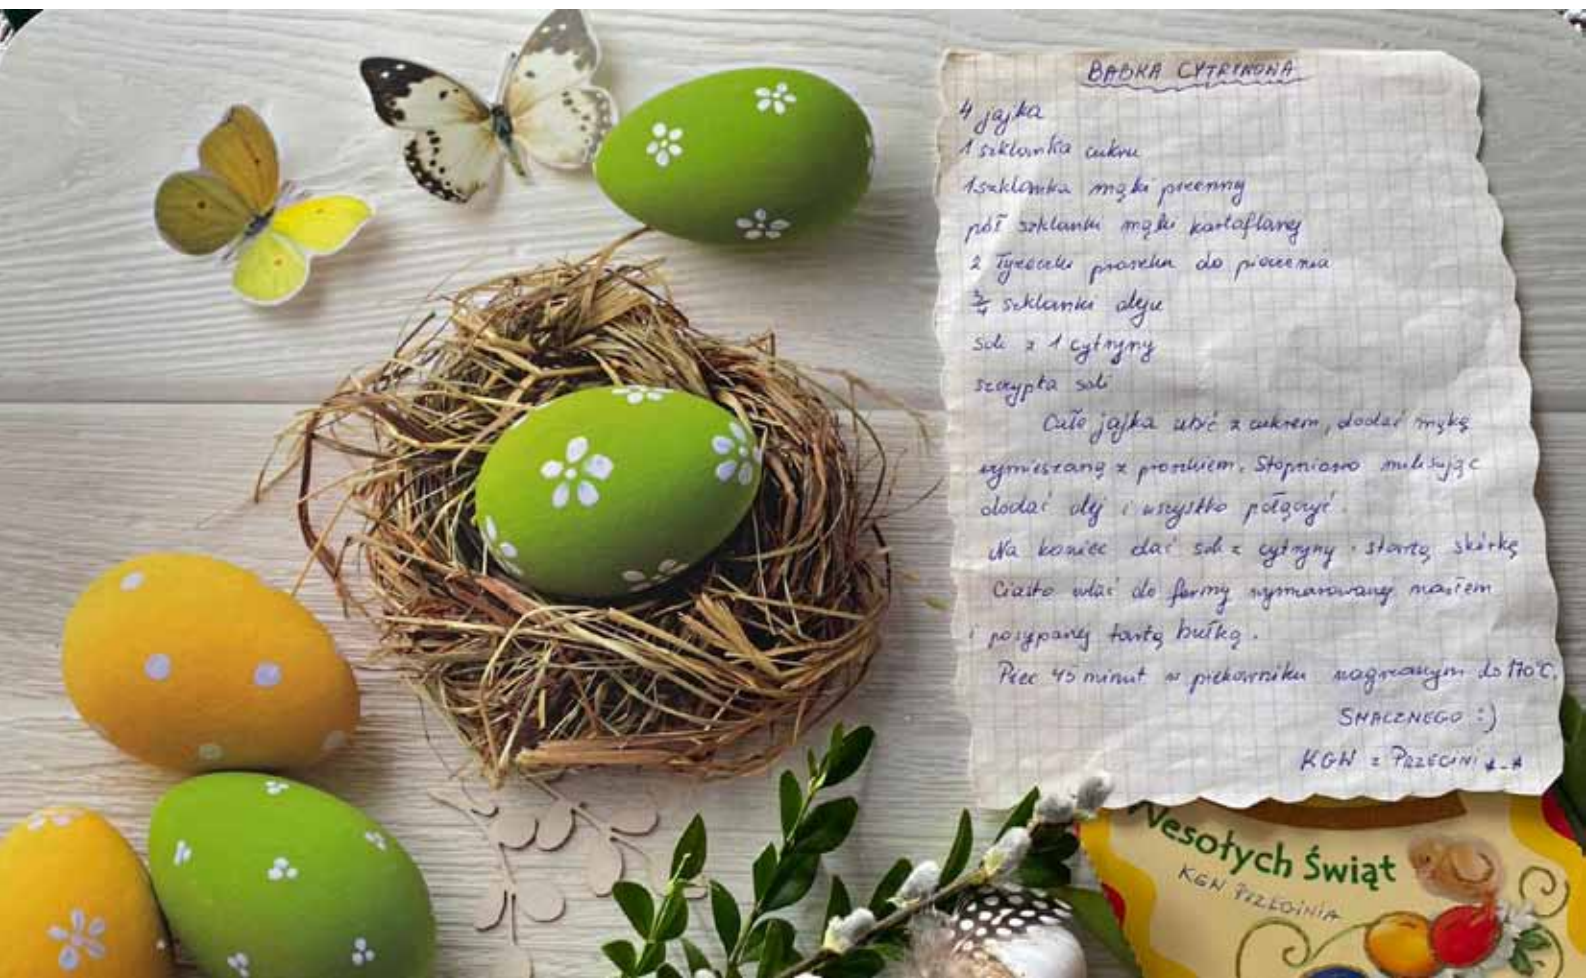 BABKA CYTRYNOWA
4 jajka
1 szklanka cukru
1 szklanka mąki pszennej
pół szklanki mąki kartoflanej
2 łyżeczki proszku do pieczenia
3/4 szklanki oleju
sok z 1 cytryny
szczypta soli
Całe jajka ubić z cukrem, dodać mąkę
wymieszaną z proszkiem. Stopniowo miksując
dodać olej i wszystko połączyć.
Na koniec dać sok z cytryny i startą skórkę
Ciasto wlać do formy wysmarowanej masłem
i posypanej tartą bułką.
Piec 45 minut w piekarniku nagrzanym do 170°C.
SMACZNEGO :)
KGW z PRZEGINI
Wesołych Świąt
KGW PRZEGINIA